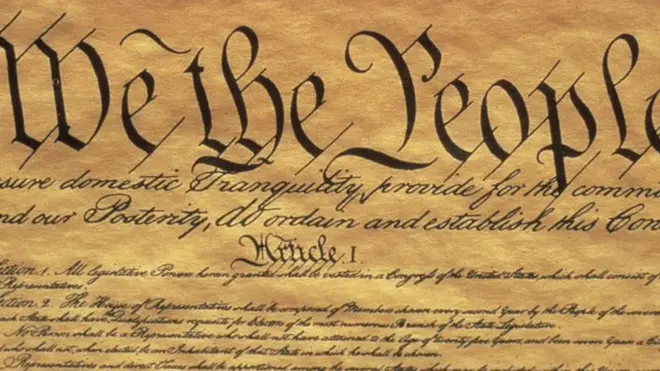 We the People
sure domestic Tranquility, provide for the commo
nd our Posterity, do ordain and establish this Con
Article I.
ction 1. All legislative Powers herein granted shall be vested in a Congress of the United States, which shall consist of
Representatives.
ction 2. The House of Representatives shall be composed of Members chosen every second Year by the People of the sever
ach State shall have the Qualifications requisite for Electors of the most numerous Branch of the State Legislature.
No Person shall be a Representative who shall not have attained to the Age of twenty five Years, and been seven Years a C
d who shall not, when elected, be an Inhabitant of that State in which he shall be chosen.
Representatives and direct Taxes shall be apportioned among the several States which may be included within this Union